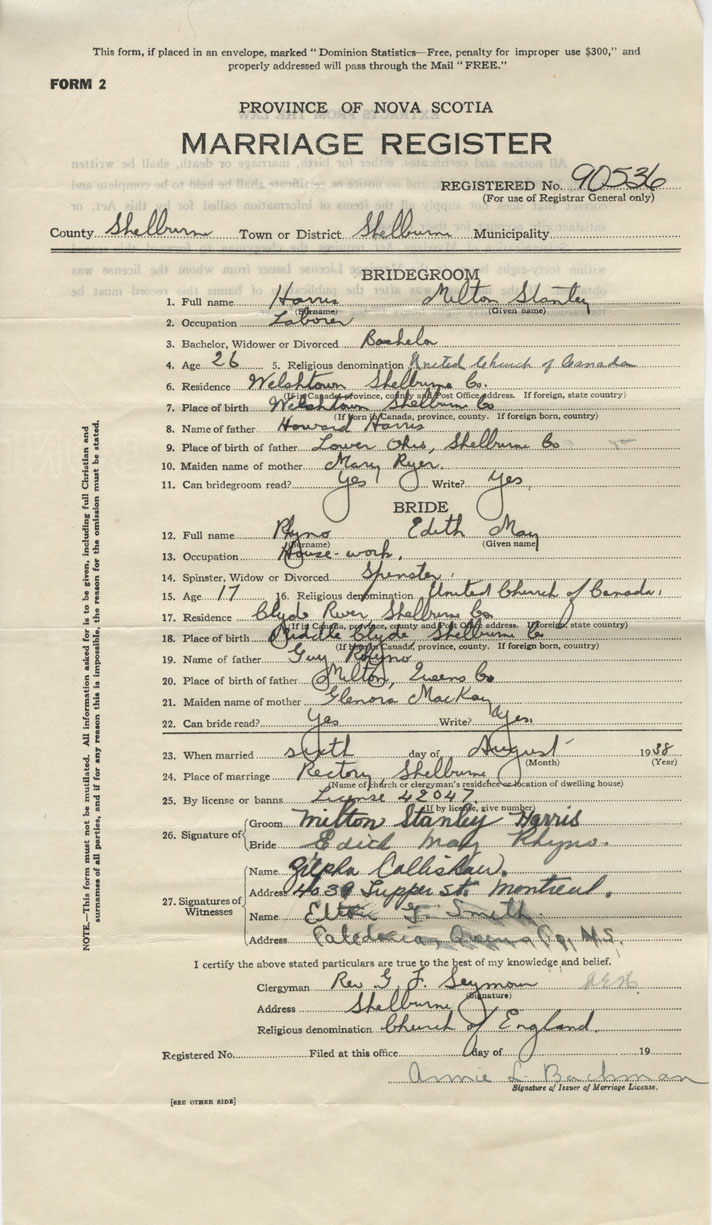 This form, if placed in an envelope, marked "Dominion Statistics—Free, penalty for improper use $300," and
properly addressed will pass through the Mail "FREE."
FORM 2
PROVINCE OF NOVA SCOTIA
MARRIAGE REGISTER
REGISTERED No. 90536
(For use of Registrar General only)
County Shelburne Town or District Shelburne Municipality
BRIDEGROOM
1. Full name Harris Milton Stanley
(Surname) (Given name)
2. Occupation Laborer
3. Bachelor, Widower or Divorced Bachelor
4. Age 26 5. Religious denomination United Church of Canada
6. Residence Welshtown Shelburne Co.
(If in Canada, province, county and Post Office address. If foreign, state country)
7. Place of birth Welshtown Shelburne Co
(If born in Canada, province, county. If foreign born, country)
8. Name of father Howard Harris
9. Place of birth of father Lower Ohio, Shelburne Co
10. Maiden name of mother Mary Ryer
11. Can bridegroom read? Yes Write? Yes
BRIDE
12. Full name Rhyno Edith May
(Surname) (Given name)
13. Occupation House-work.
14. Spinster, Widow or Divorced Spinster
15. Age 17 16. Religious denomination United Church of Canada
17. Residence Clyde River Shelburne Co
(If in Canada, province, county and Post Office address. If foreign, state country)
18. Place of birth Middle Clyde Shelburne Co
(If born in Canada, province, county. If foreign born, country)
19. Name of father Guy Rhyno
20. Place of birth of father Milton, Queens Co
21. Maiden name of mother Glenora MacKay
22. Can bride read? Yes Write? Yes.
23. When married sixth day of August 1938
(Month) (Year)
24. Place of marriage Rectory, Shelburne
(Name of church or clergyman's residence or location of dwelling house)
25. By license or banns License 42047
(If by license, give number)
26. Signature of Groom Milton Stanley Harris
Bride Edith May Rhyno.
27. Signatures of Witnesses Name Zilpha
Address St. Montreal.
Name Elton F. Smith
Address Caledonia, Queens Co, N.S.
I certify the above stated particulars are true to the best of my knowledge and belief.
Clergyman Rev G. F. Seymour
(Signature)
Address Shelburne
Religious denomination Church of England.
Registered No. Filed at this office day of 19
Annie L. Bachman
Signature of Issuer of Marriage License.
[SEE OTHER SIDE]
NOTE.—This form must not be mutilated. All information asked for is to be given, including full Christian and
surnames of all parties, and if for any reason this is impossible, the reason for the omission must be stated.